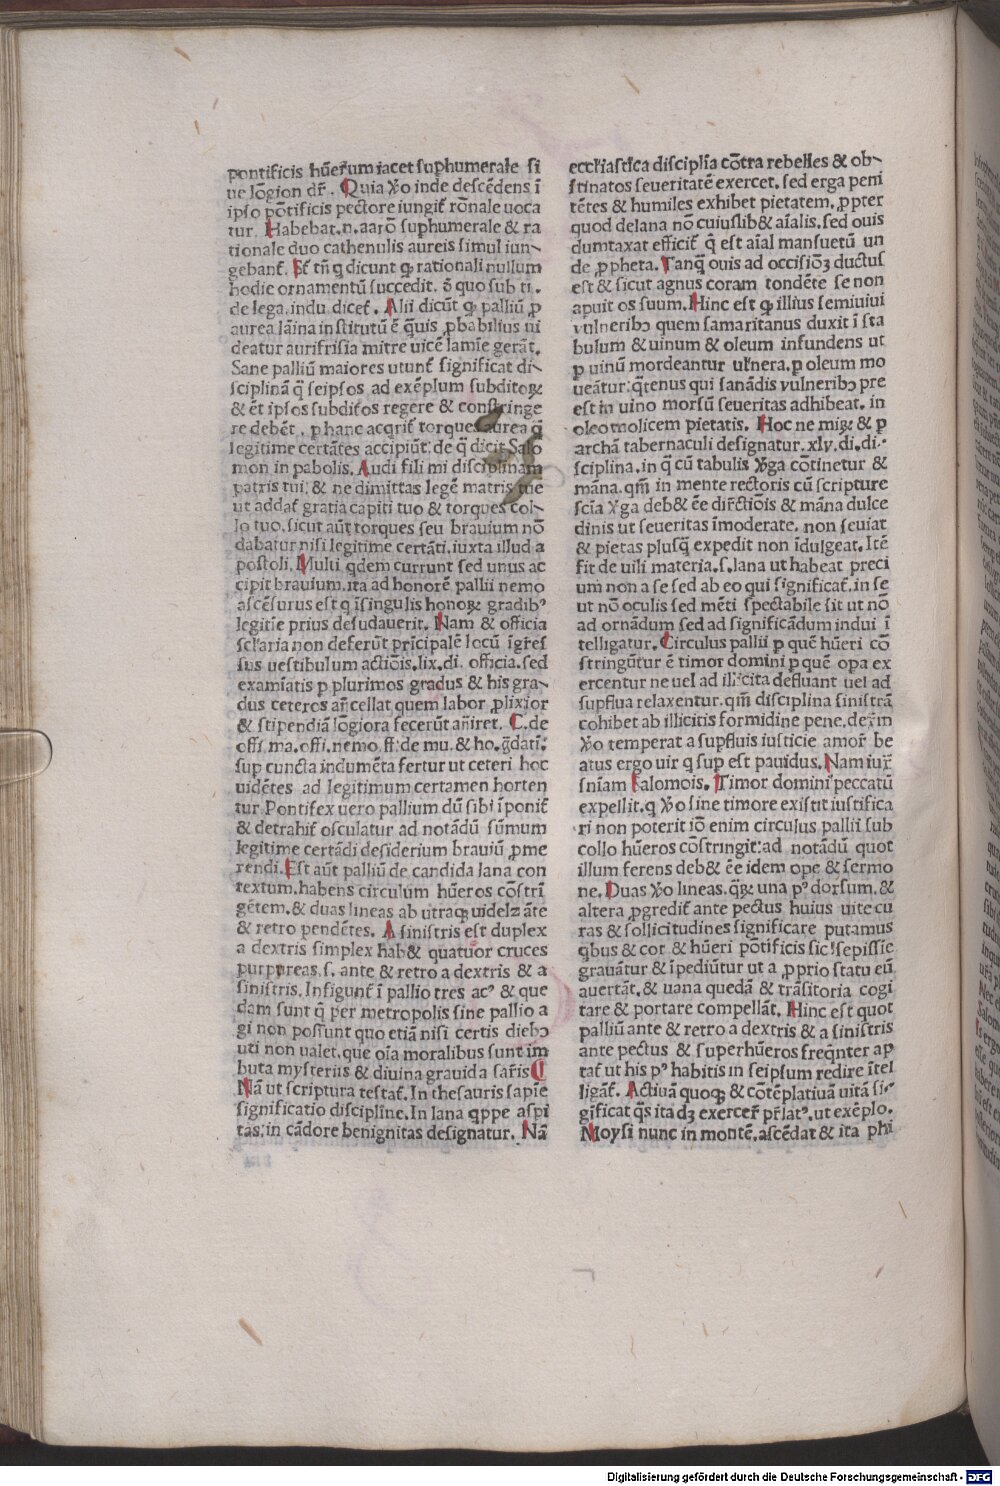 pontificis hūeꝝum iacet suphumerale si
ue lōgion dr̄. Quia ꝟo inde descēdens ī
ipso pōtificis pectore iungit̄ rōnale uoca
tur. Habebat.n.aarō suphumerale & ra
tionale duo cathenulis aureis simul iun-
gebant̄. Et tn̄ q dicunt ꝙ rationali nullum
hodie ornamentū succedit. ō quo sub ti.
de lega.indu.dicet̄. Alii dicūt ꝙ palliū ꝓ
aurea lāina institutū ē q̄uis ꝓbabilius ui
deatur aurifrisia mitre uicē lamīe gerāt.
Sane palliū maiores utunt̄ significat di-
sciplinā q̄ seipsos ad exēplum subditoꝝ
& ēt ipsos subditos regere & constringe
re debēt. p hanc acqrit̄ torques aurea q̄
legitime certātes accipiūt: de q̄ dicit Salo
mon in pabolis. Audi fili mi disciplinam
patris tui: & ne dimittas legē matris tue
ut addat̄ gratia capiti tuo & torques col-
lo tuo.sicut aūt torques seu brauium nō
dabatur nisi legitime certāti.iuxta illud a
postoli. Multi qdem currunt sed unus ac
cipit brauium.ita ad honorē pallii nemo
ascēsurus est q īsingulis honoꝝ gradibꝰ
legitīe prius desudauerit. Nam & officia
scl'aria non deferūt prīcipalē locū īgres
sus uestibulum actiōis.lix.di. officia.sed
examīatis p plurimos gradus & his gra-
dus ceteros an̄cellat quem labor ꝓlixior
& stipendiā lōgiora fecerūt an̄iret. C.de
offi.ma.offi.nemo.ff.de mu.& ho.ḡdati:
sup cuncta indumēta fertur ut ceteri hoc
uidētes ad legitimum certamen horten
tur. Pontifex uero pallium dū sibi īponit̄
& detrahit̄ osculatur ad notādū sūmum
legitime certādi desiderium brauiū ꝓme
rendi. Est aūt palliū de candida lana con
textum.habens circulum hūeros cōstrī
gētem.& duas lineas ab utraqꝫ uidelꝫ āte
& retro pendētes. A sinistris est duplex
a dextris simplex hab& quatuor cruces
purpureas.s. ante & retro a dextris & a
sinistris. Infigunt̄ ī pallio tres acꝰ & que
dam sunt q̄ per metropolis sine pallio a
gi non possunt quo etiā nisi certis diebꝫ
uti non ualet.que oīa moralibus sunt im
buta mysteriis & diuina grauida sac̄ris
Nā ut scriptura testat̄. In thesauris sapīe
significatio discipline. In lana qppe aspi
tas: in cādore benignitas designatur. Nā
eccl'iastica displīa cōtra rebelles & ob-
stinatos seueritatē exercet. sed erga peni
tētes & humiles exhibet pietatem. ꝓpter
quod delana nō cuiuslib& aīalis. sed ouis
dumtaxat efficit̄ q̄ est aīal mansuetū un
de ꝓpheta. Tanq̄ ouis ad occisiōꝫ ductus
est & sicut agnus coram tondēte se non
apuit os suum. Hinc est ꝙ illius semiuiui
vulneribꝫ quem samaritanus duxit ī sta
bulum & uinum & oleum infundens ut
p uinū mordeantur ul'nera.p oleum mo
ueātur: q̄tenus qui sanādis vulneribꝫ pre
est in uino morsū seueritas adhibeat. in
oleo molicem pietatis. Hoc ne miꝝ & p
archā tabernaculi designatur. xlv. di. di-
sciplina. in q̄ cū tabulis ꝟga cōtinetur &
māna. qm̄ in mente rectoris cū scripture
scīa ꝟga deb& ēe dir̄ctiōis & māna dulce
dinis ut seueritas īmoderate. non seuiat
& pietas plusq̄ expedit non īdulgeat. Itē
fit de uili materia.s.lana ut habeat preci
um non a se sed ab eo qui significat̄. in se
ut nō oculis sed mēti spectabile sit ut nō
ad ornādum sed ad significādum indui ī
telligatur. Circulus pallii p quē hūeri cō
stringūtur ē timor domini p quē opa ex
ercentur ne uel ad illicita defluant uel ad
supflua relaxentur. qm̄ disciplina sinistrā
cohibet ab illicitis formidine pene. dex̄m
ꝟo temperat a supfluis iusticie amor̄ be
atus ergo uir q sup est pauidus. Nam iux̄
sn̄iam salomōis. Timor domini peccatū
expellit. q ꝟo sine timore existit iustifica
ri non poterit iō enim circulus pallii sub
collo hūeros cōstringit: ad notādū quot
illum ferens deb& ēe idem ope & sermo
ne. Duas ꝟo lineas. q̄ꝝ una pꝰ dorsum.&
altera ꝓgredit̄ ante pectus huius uite cu
ras & sollicitudines significare putamus
qbus & cor & hūeri pōtificis sic īsepissīe
grauātur & īpediūtur ut a ꝓprio statu eū
auertāt. & uana quedā & trāsitoria cogi
tare & portare compellāt. Hinc est quot
palliū ante & retro a dextris & a sinistris
ante pectus & superhūeros freqn̄ter ap
tat̄ ut his pꝰ habitis in seipsum redire ītel
ligāt. Actiuā quoqꝫ & cōtēplatiuā uitā si-
gificat q̄s ita dꝫ exercer̄ pr̄latꝰ. ut exēplo.
Moysi nunc in montē. ascēdat & ita phi
Digitalisierung gefördert durch die Deutsche Forschungsgemeinschaft - DFG